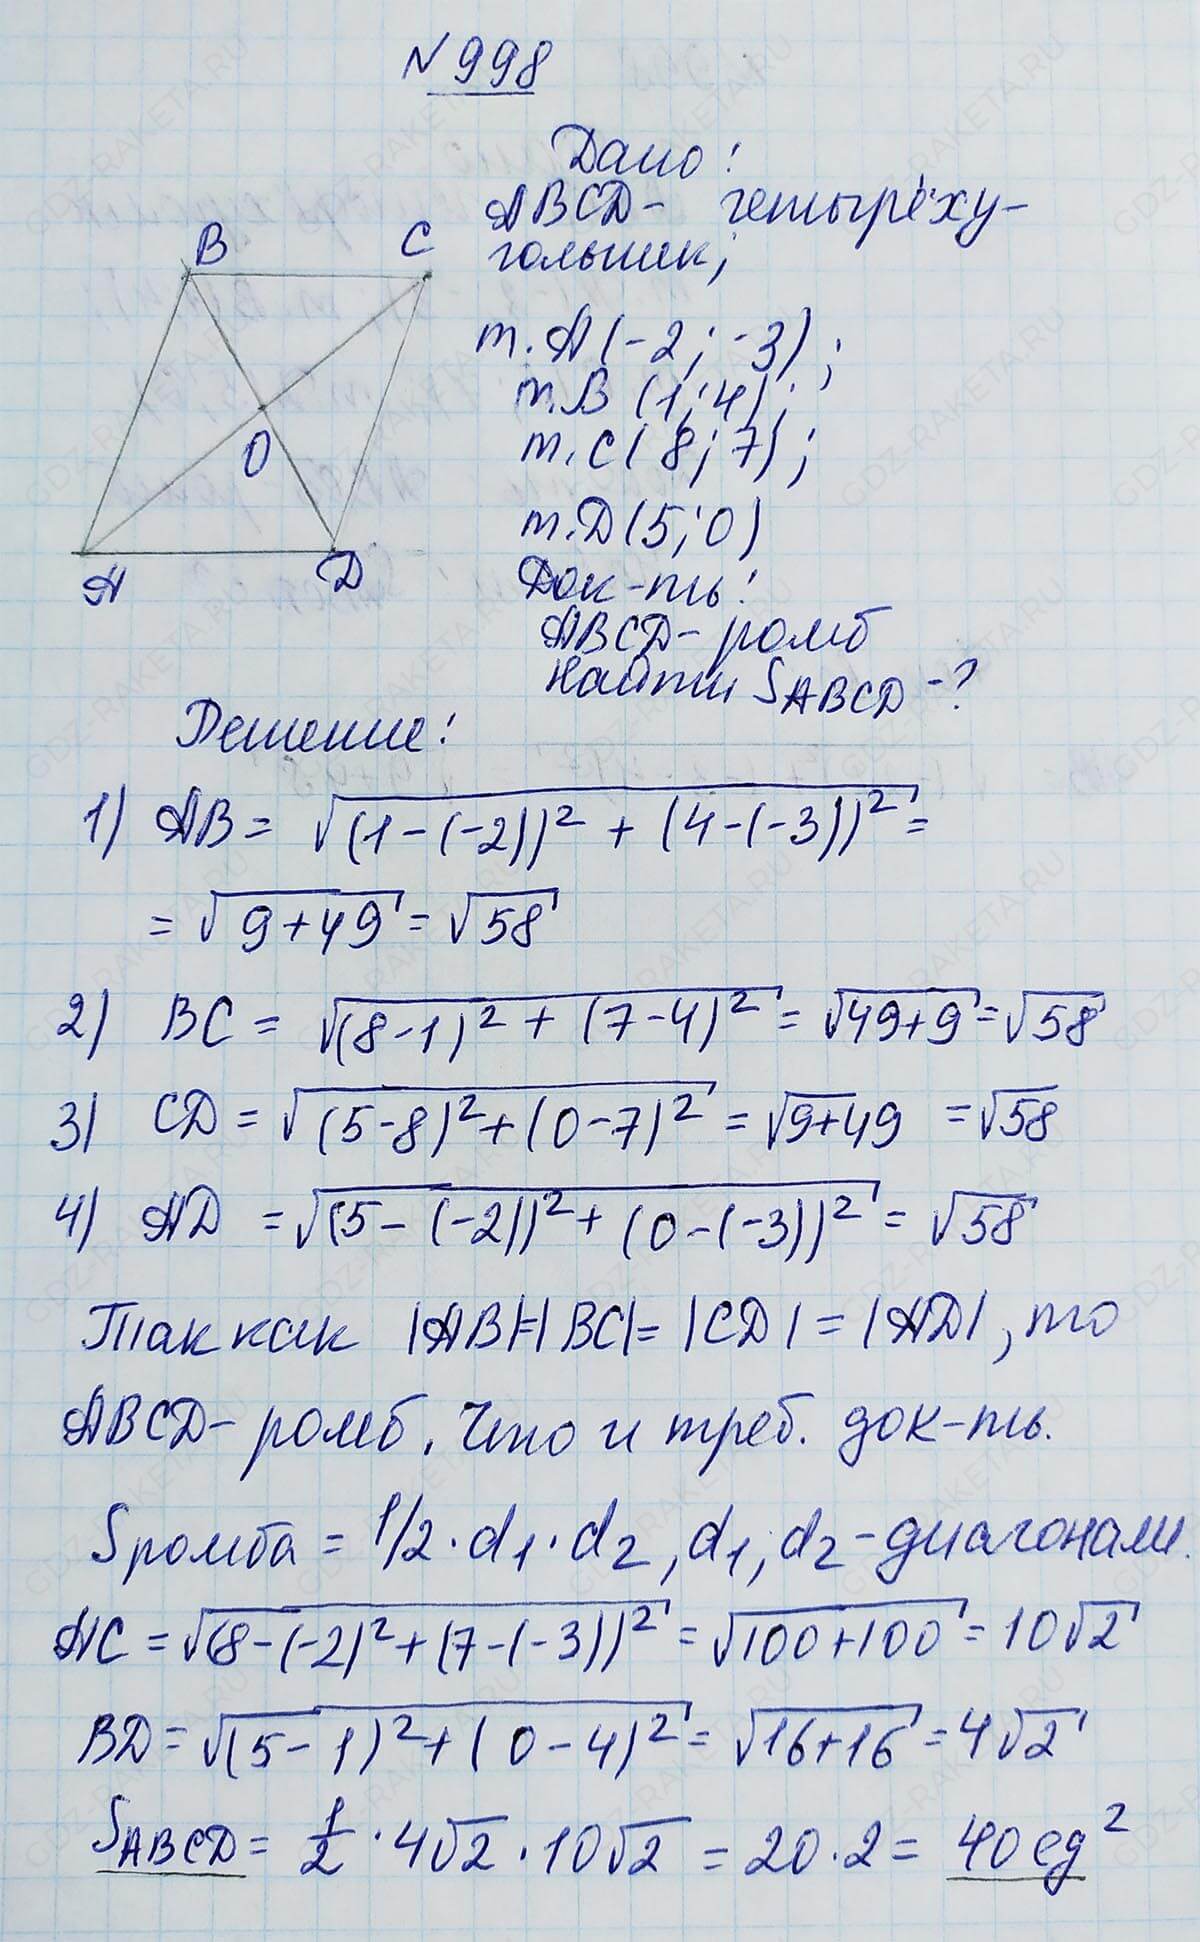 N 998
Дано:
ABCD - четырёху-
гольник;
B C
т. A (-2; -3);
т. B (1; 4);
т. C (8; 7);
O
т. D (5; 0)
A D
Док-ть:
ABCD - ромб
Найти S ABCD - ?
Решение:
1) AB = √((1-(-2))² + (4-(-3))²) =
= √(9+49) = √58
2) BC = √((8-1)² + (7-4)²) = √(49+9) = √58
3) CD = √((5-8)² + (0-7)²) = √(9+49) = √58
4) AD = √((5-(-2))² + (0-(-3))²) = √58
Так как |AB|=|BC|=|CD|=|AD|, то
ABCD - ромб. Что и треб. док-ть.
Sромба = 1/2 · d1 · d2, d1, d2 - диагонали.
AC = √((8-(-2)² + (7-(-3))²) = √(100+100) = 10√2
BD = √((5-1)² + (0-4)²) = √(16+16) = 4√2
S ABCD = 1/2 · 4√2 · 10√2 = 20·2 = 40 ед²
GDZ-RAKETA.RU